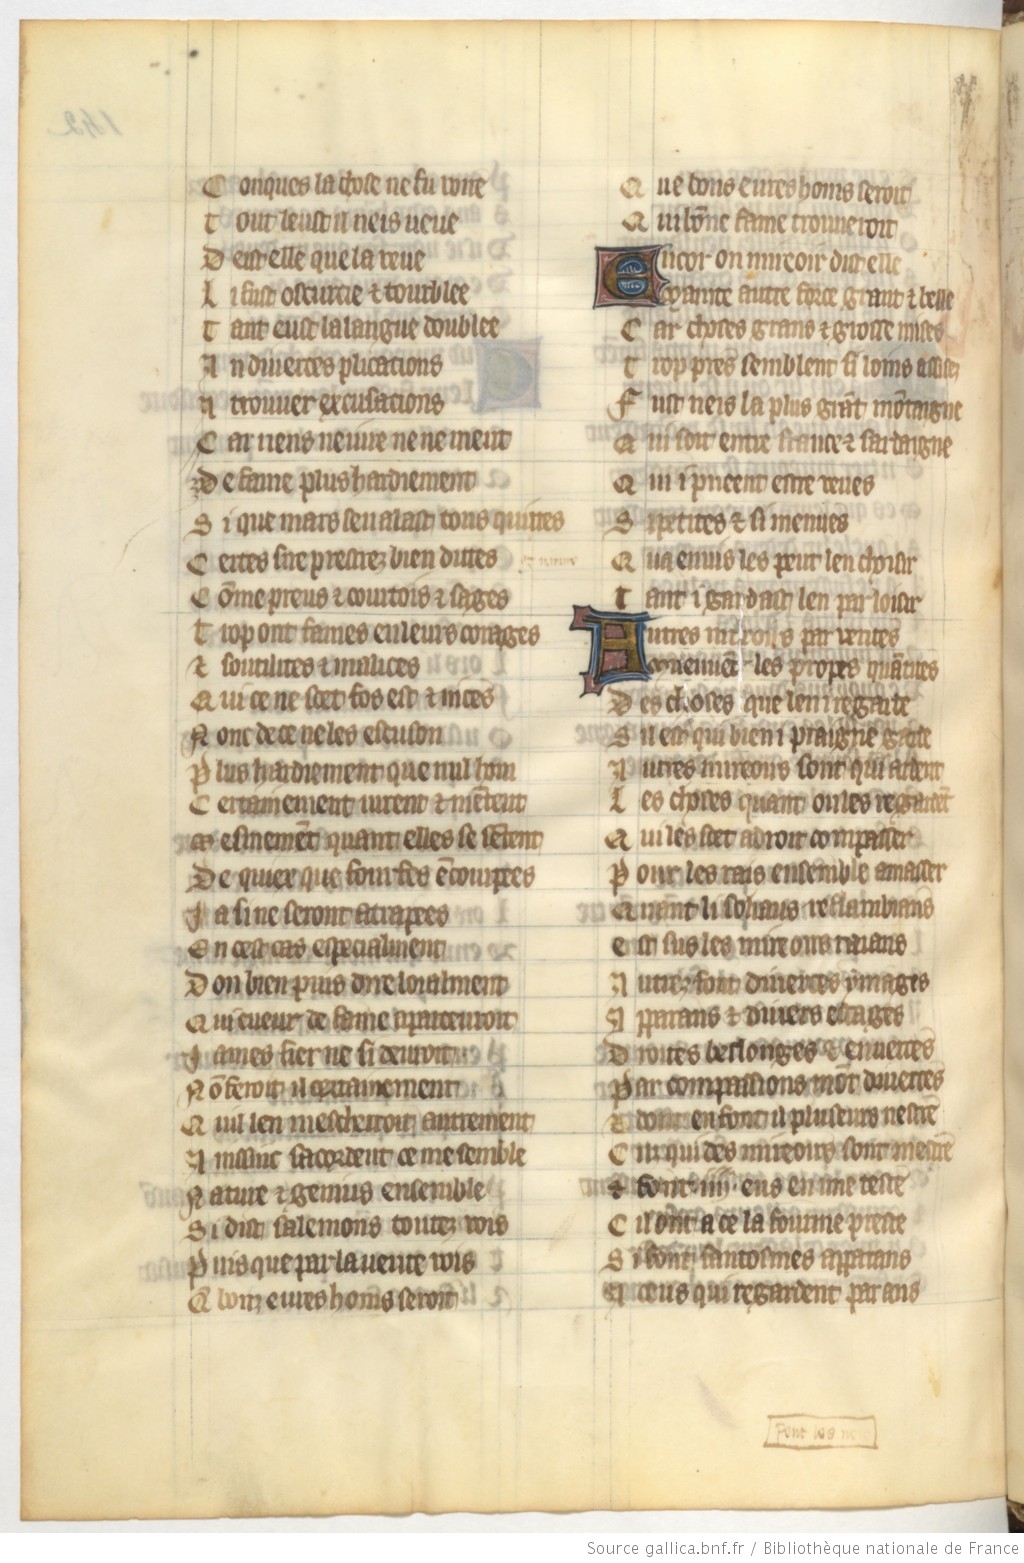 C onques la chose ne fu voire
T out leust il neis veue
D eist elle que la veue
L i fust oscurcie & tourblee
T ant eust la langue doublee
A n diverces plicacions
A trouver excusacions
C ar riens ne iure ne ne ment
D e fame plus hardiement
S i que mars sen alast tous quites
C ertes sire prestrez bien dittes
C õme preus & courtois & sages
T rop ont fames en leurs corages
& soutilites & malices
Q ui ce ne scet fos est & nices
N onc de ce ne les escuson
P lus hardiement que nul hom
C ertainement iurent & mẽtent
M esmemẽt quant elles se sẽtent
D e quiex que forfes ẽcoupees
J a si ne seront atrapees
E n cest cas especialment
D on bien puis dire loialment
Q ui cueur de fame aparcevroit
J ames fier ne si devroit
N õ feroit il certainement
Q uil len mescherroit autrement
A inssinc sacordent ce me semble
N ature & genius ensemble
S i dist salemons toutez vois
P uis que par la verite vois
Q boin eures homs seroit
Q ue bons eures homs seroit
Q ui bõne fame trouveroit
E ncor on mireoir dist elle
M ainte autre force grant & belle
C ar choses grans & grosse mises
T rop pres semblent si loins assises
F ust neis la plus grãt mõtaigne
Q ui soit entre france & sardaigne
Q ui i pueent estre veues
S i petites & si menues
Q ua envis les peut len choisir
T ant i gardast len par loisir
A utres mireoirs par verites
M onstrent les propres quãtites
D es choses que len i regarde
S il est qui bien i praigne garde
A utres mireoirs sont qui ardent
L es choses quant on les regardẽt
Q ui les scet adroit compasser
P our les rais ensemble amasser
Q uant li solaus reflambians
E st sus les mireoirs raians
A utrez font diverces ymages
A pparans & divers estages
D roites bellongez & enverces
P ar compassions mõt diverces
& dont en font il pluseurs nestre
C il qui des mireoirs sont mestre
& font .iiij. eus en une teste
C il ont a ce la fourme preste
S i font fantosmes apparans
A ceus qui regardent par ans
Source gallica.bnf.fr / Bibliothèque nationale de France